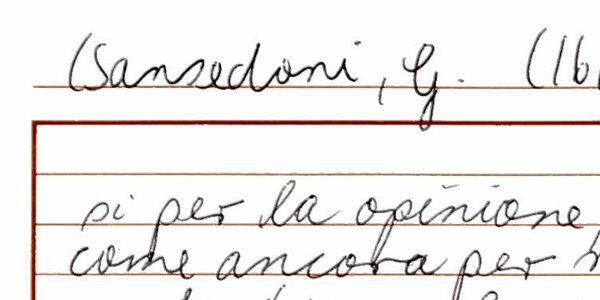 (Sansedoni, G. (16
si per la opinione
come ancora per